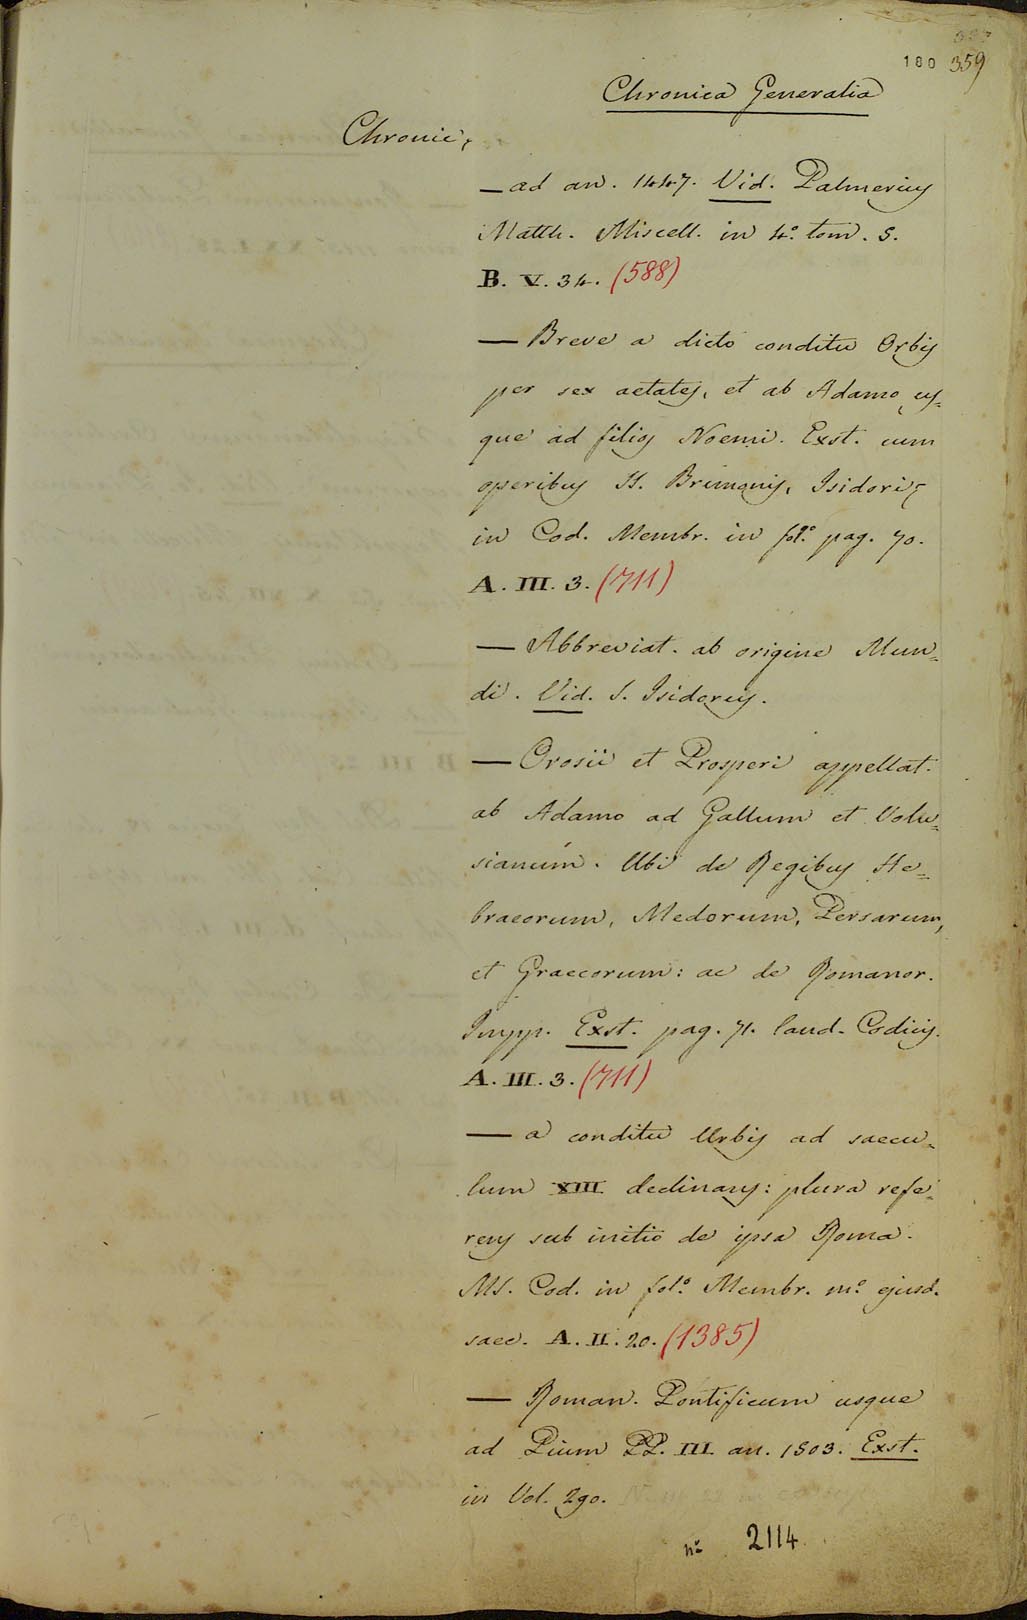 180 359
Chronica Generalia
Chronic,
— ad an. 1447. Vid. Palmerius
Matth. Miscell. in 4.° tom. 5.
B. V. 34. (588)
— Breve a dicto conditu Orbis
per sex aetates, et ab Adamo us=
que ad filios Noemi. Exst. cum
operibus H. Brimonis, Isidori,
in Cod. Membr. in fol.° pag. 70.
A. III. 3. (711)
— Abbreviat. ab origine Mun=
di. Vid. S. Isidorus.
— Orosii et Prosperi appellat.
ab Adamo ad Gallum et Volu=
sianum. Ubi de Regibus He=
braeorum, Medorum, Persarum,
et Graecorum: ac de Romanor.
Impp. Exst. pag. 71. laud. Codicis.
A. III. 3. (711)
— a conditu Urbis ad saecu=
lum XIII declinans: plura refe=
rens sub initio de ipsa Roma.
MS. Cod. in fol.° Membr. m.° ejusd.
saec. A. II. 20. (1385)
— Roman. Pontificum usque
ad Pium PP. III an. 1503. Exst.
in Vol. 290.
n° 2114